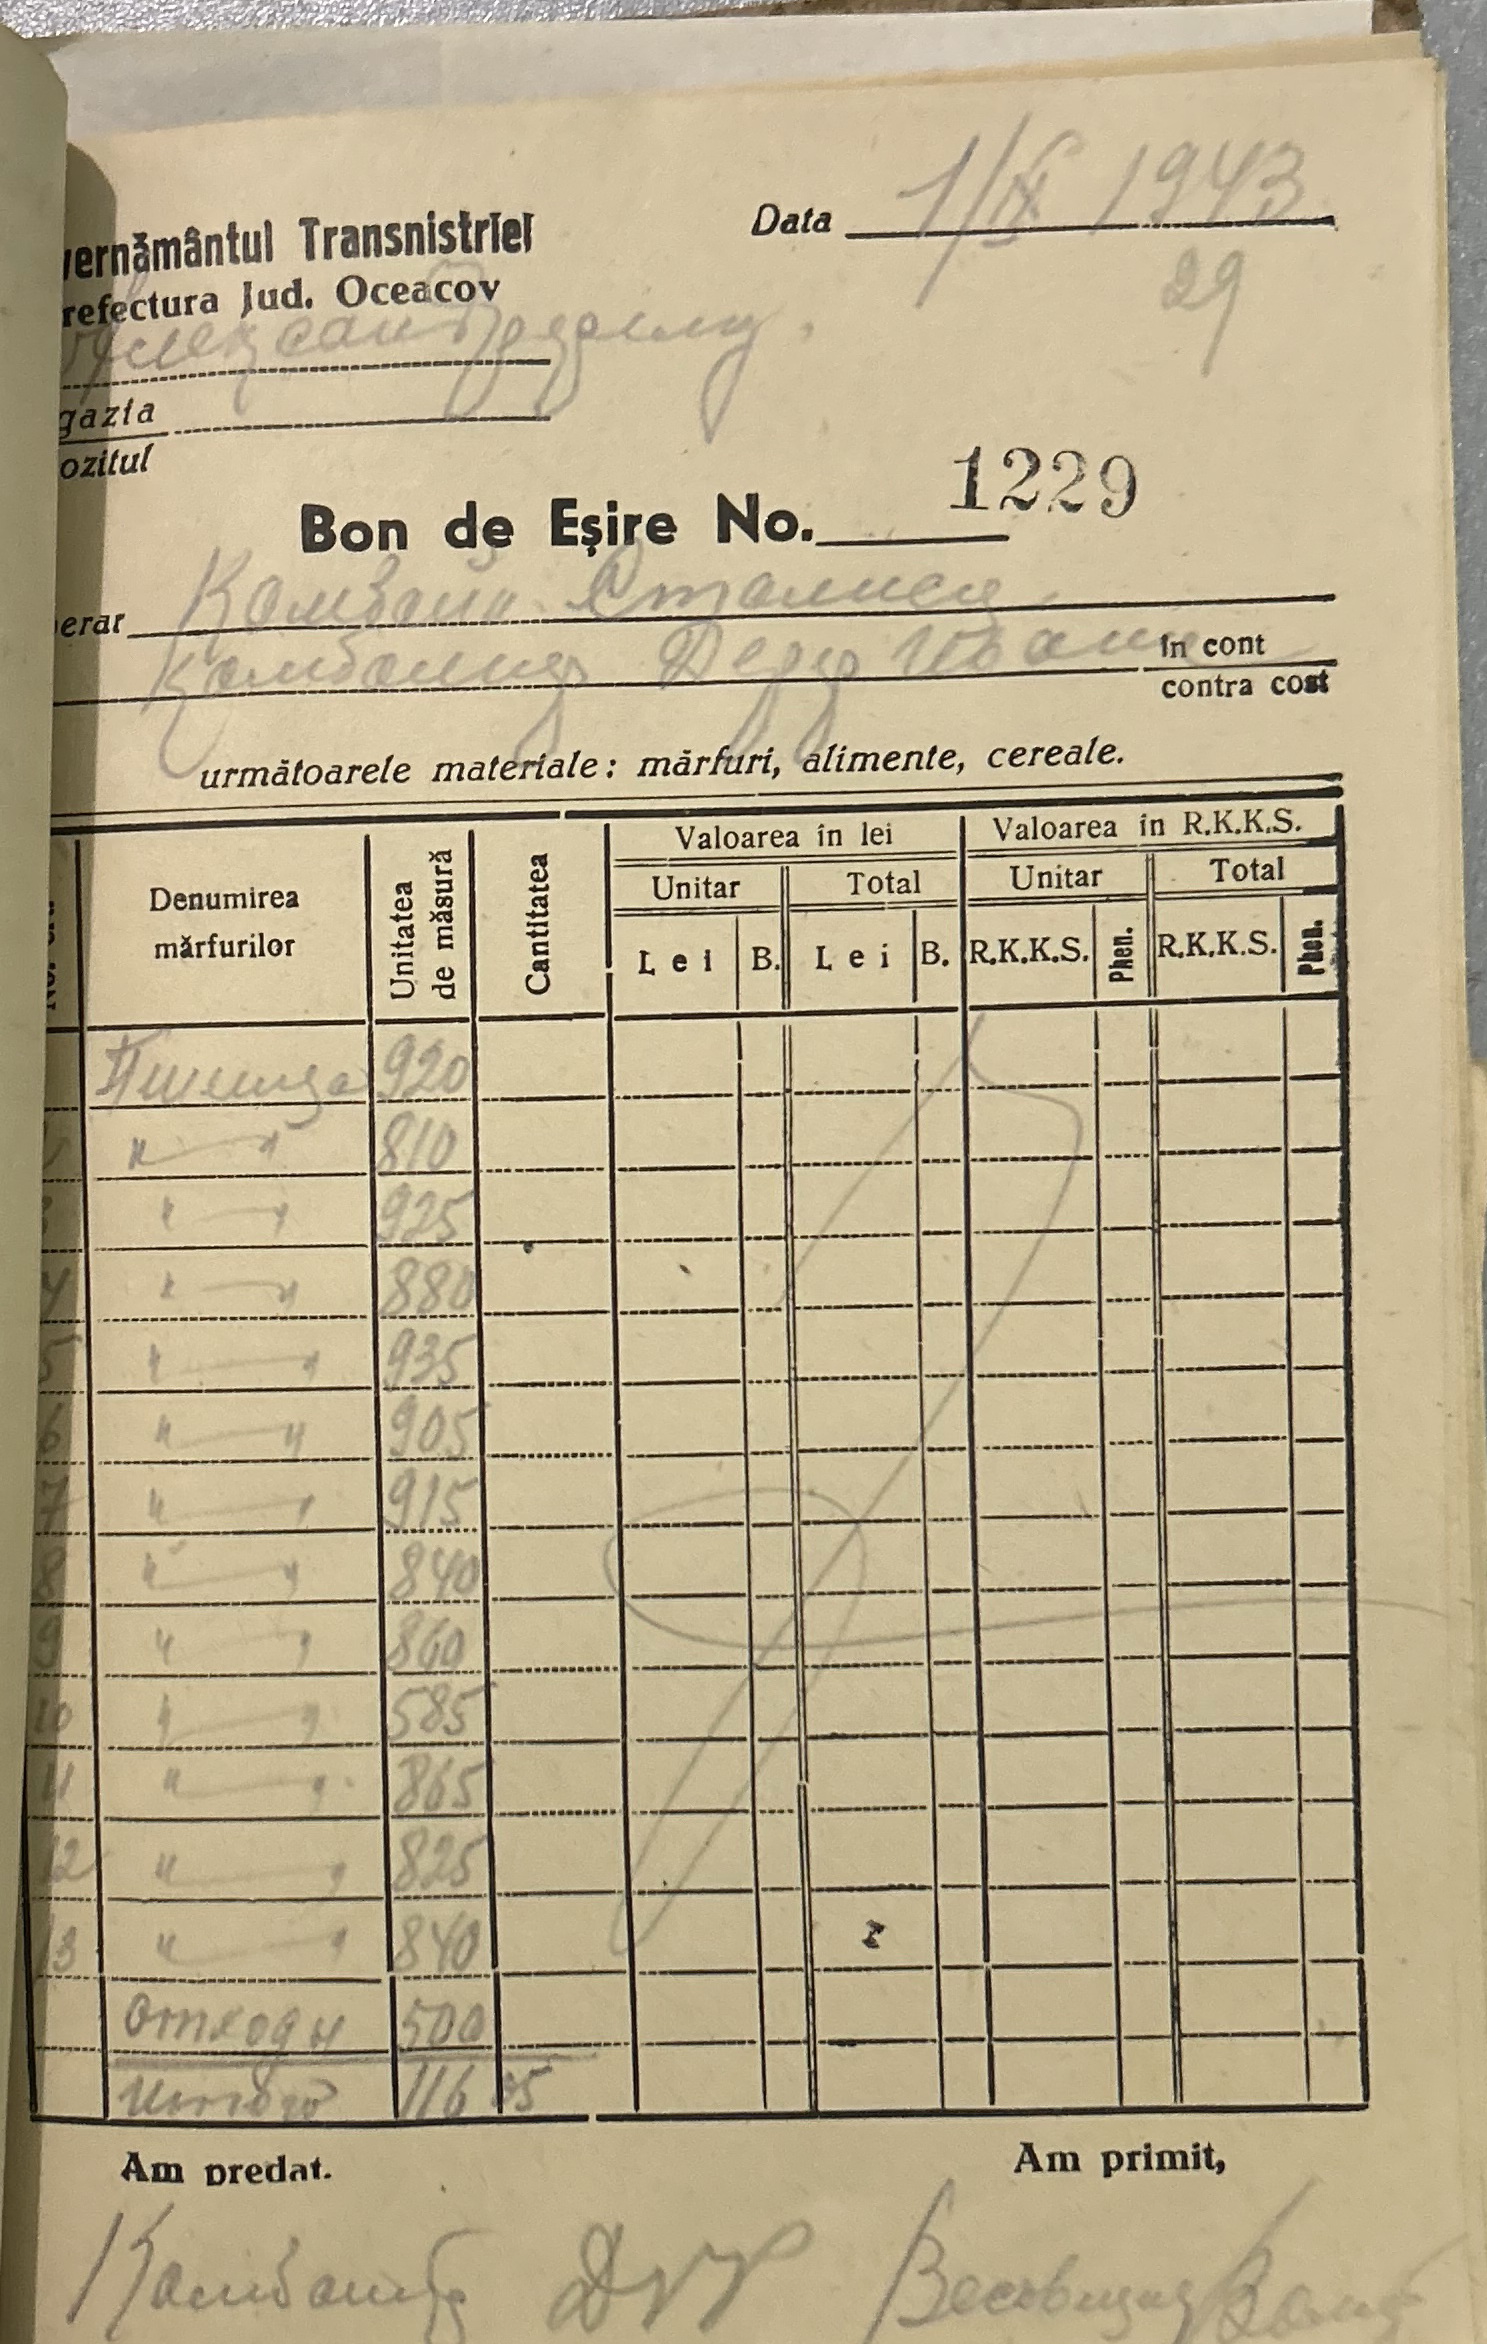 vernământul Transnistriei
Data 1/IX 1943
refectura Jud. Oceacov
29
gazia
ozitul
Bon de Eșire No. 1229
erar Комбайн Сталинец
Комбайнер in cont
contra cost
următoarele materiale: mărfuri, alimente, cereale.
Denumirea mărfurilor Unitatea de măsură Cantitatea Valoarea în lei Valoarea in R.K.K.S.
Unitar Total Unitar Total
Lei B. Lei B. R.K.K.S. Phen. R.K.K.S. Phen.
Пшеница 920
" — " 810
" — " 925
4 " — " 880
5 " — " 935
6 " — " 905
7 " — " 915
8 " — " 840
9 " — " 860
10 " — " 585
11 " — " 865
12 " — " 825
13 " — " 840
Отходы 500
Итого 11605
Am predat. Am primit,
Весовщик